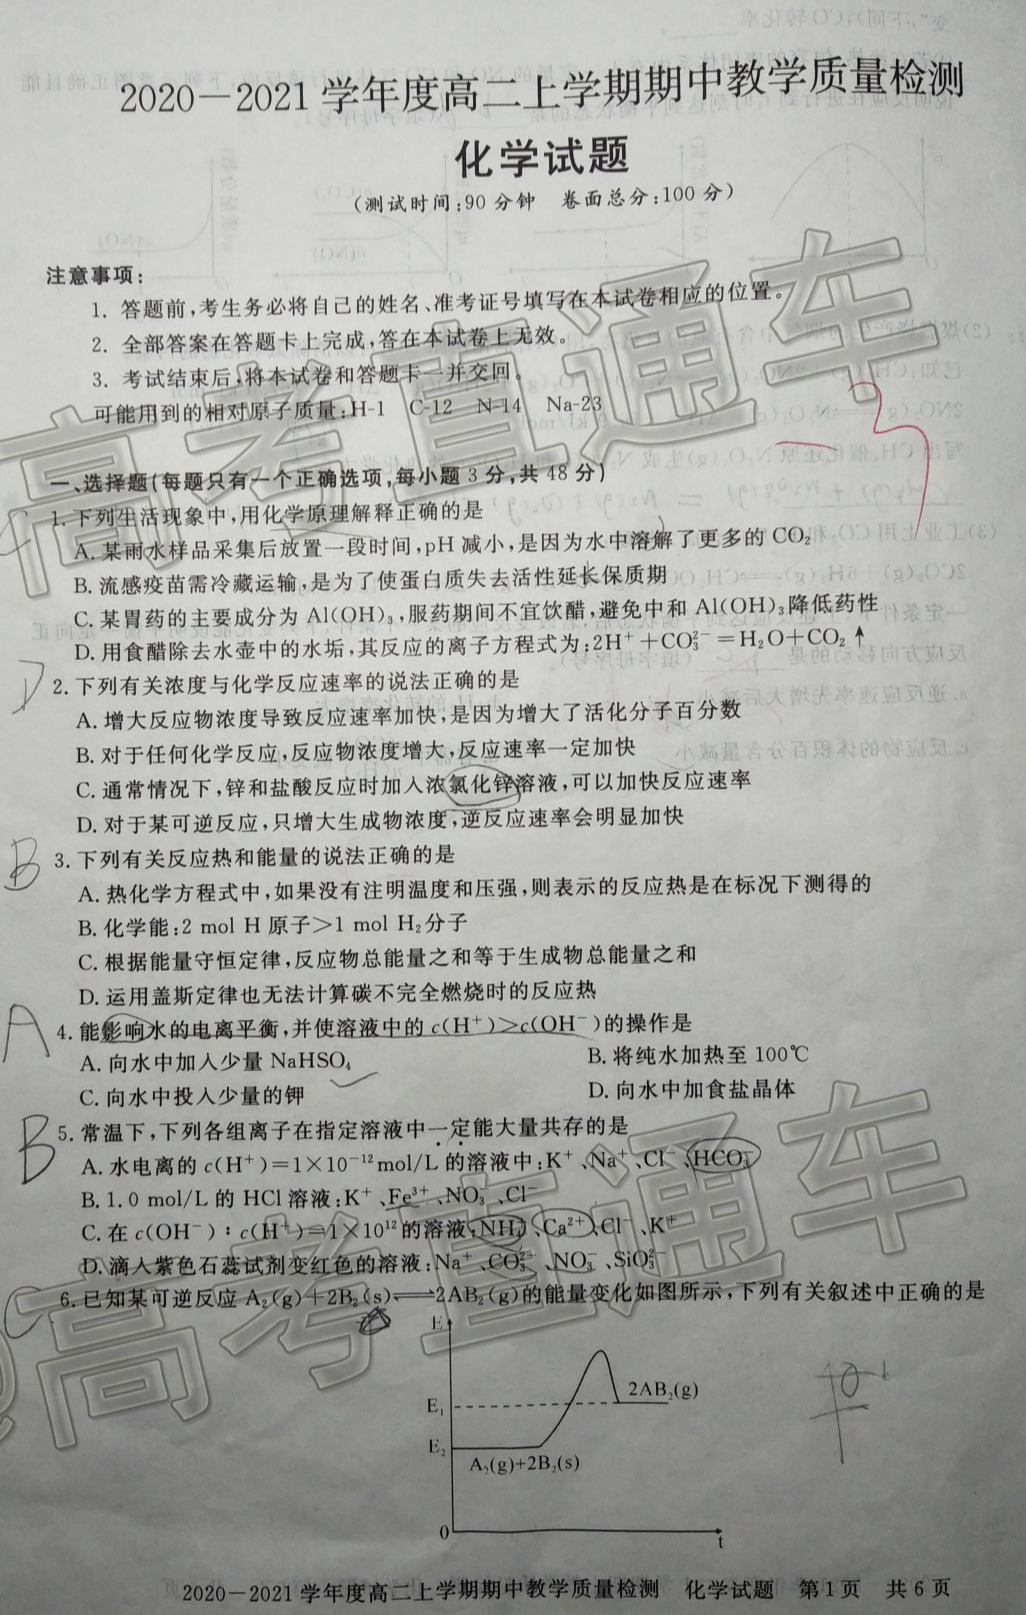 2020—2021学年度高二上学期期中教学质量检测
化学试题
(测试时间:90分钟 卷面总分:100分)
注意事项:
1. 答题前,考生务必将自己的姓名、准考证号填写在本试卷相应的位置。
2. 全部答案在答题卡上完成,答在本试卷上无效。
3. 考试结束后,将本试卷和答题卡一并交回。
可能用到的相对原子质量:H-1 C-12 N-14 Na-23
一、选择题(每题只有一个正确选项,每小题3分,共48分)
1. 下列生活现象中,用化学原理解释正确的是
A. 某雨水样品采集后放置一段时间,pH减小,是因为水中溶解了更多的CO₂
B. 流感疫苗需冷藏运输,是为了使蛋白质失去活性延长保质期
C. 某胃药的主要成分为Al(OH)₃,服药期间不宜饮醋,避免中和Al(OH)₃降低药性
D. 用食醋除去水壶中的水垢,其反应的离子方程式为:2H⁺+CO₃²⁻=H₂O+CO₂↑
D 2. 下列有关浓度与化学反应速率的说法正确的是
A. 增大反应物浓度导致反应速率加快,是因为增大了活化分子百分数
B. 对于任何化学反应,反应物浓度增大,反应速率一定加快
C. 通常情况下,锌和盐酸反应时加入浓氯化锌溶液,可以加快反应速率
D. 对于某可逆反应,只增大生成物浓度,逆反应速率会明显加快
B 3. 下列有关反应热和能量的说法正确的是
A. 热化学方程式中,如果没有注明温度和压强,则表示的反应热是在标况下测得的
B. 化学能:2 mol H原子>1 mol H₂分子
C. 根据能量守恒定律,反应物总能量之和等于生成物总能量之和
D. 运用盖斯定律也无法计算碳不完全燃烧时的反应热
A 4. 能影响水的电离平衡,并使溶液中的c(H⁺)>c(OH⁻)的操作是
A. 向水中加入少量NaHSO₄ B. 将纯水加热至100℃
C. 向水中投入少量的钾 D. 向水中加食盐晶体
B 5. 常温下,下列各组离子在指定溶液中一定能大量共存的是
A. 水电离的c(H⁺)=1×10⁻¹²mol/L的溶液中:K⁺、Na⁺、Cl⁻、HCO₃⁻
B. 1.0 mol/L的HCl溶液:K⁺、Fe³⁺、NO₃⁻、Cl⁻
C. 在c(OH⁻):c(H⁺)=1×10¹²的溶液:NH₄⁺、Ca²⁺、Cl⁻、K⁺
D. 滴入紫色石蕊试剂变红色的溶液:Na⁺、CO₃²⁻、NO₃⁻、SiO₃²⁻
C 6. 已知某可逆反应A₂(g)+2B₂(s)⇌2AB₂(g)的能量变化如图所示,下列有关叙述中正确的是
E
E₁
2AB₂(g)
E₂
A₂(g)+2B₂(s)
0
t
2020—2021学年度高二上学期期中教学质量检测 化学试题 第1页 共6页
高考直通车
@高考直通车